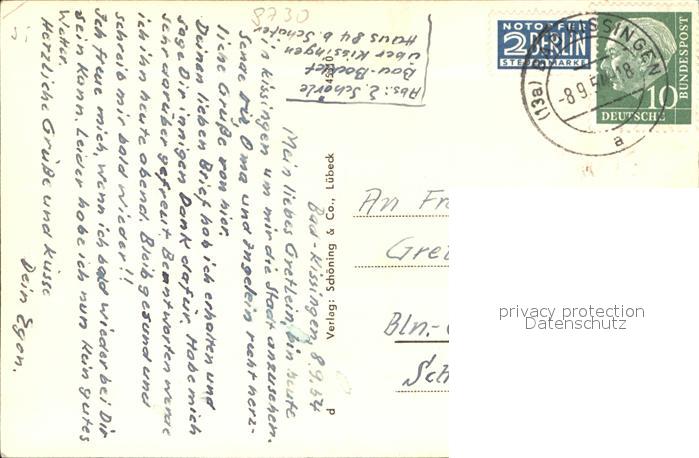 8730
Abs: E. Schorle
Bad-Bocklet
über Kissingen
Haus 84 b Schäfer
NOTOPFER
2 BERLIN
STEUERMARKE
(13a) BAD KISSINGEN
-8.9.54.-18
a
DEUTSCHE
BUNDESPOST
10
Bad-Kissingen, 8.9.54
Mein liebes Gretlein, bin heute
in Kissingen um mir die Stadt anzusehen.
Sende Dir, Oma und Ingelein recht herz-
liche Grüße von hier.
Deinen lieben Brief hab ich erhalten und
sage Dir innigen Dank dafür. Habe mich
sehr darüber gefreut. Beantworten werde
ich ihn heute abend. Bleib gesund und
schreib mir bald wieder!!
Ich freue mich, wenn ich bald wieder bei Dir
sein kann. Leider habe ich nun kein gutes
Wetter.
Herzliche Grüße und Küsse
Dein Egon.
Verlag: Schöning & Co., Lübeck
An Fr
Gre
Bln.-
Sch
privacy protection
Datenschutz